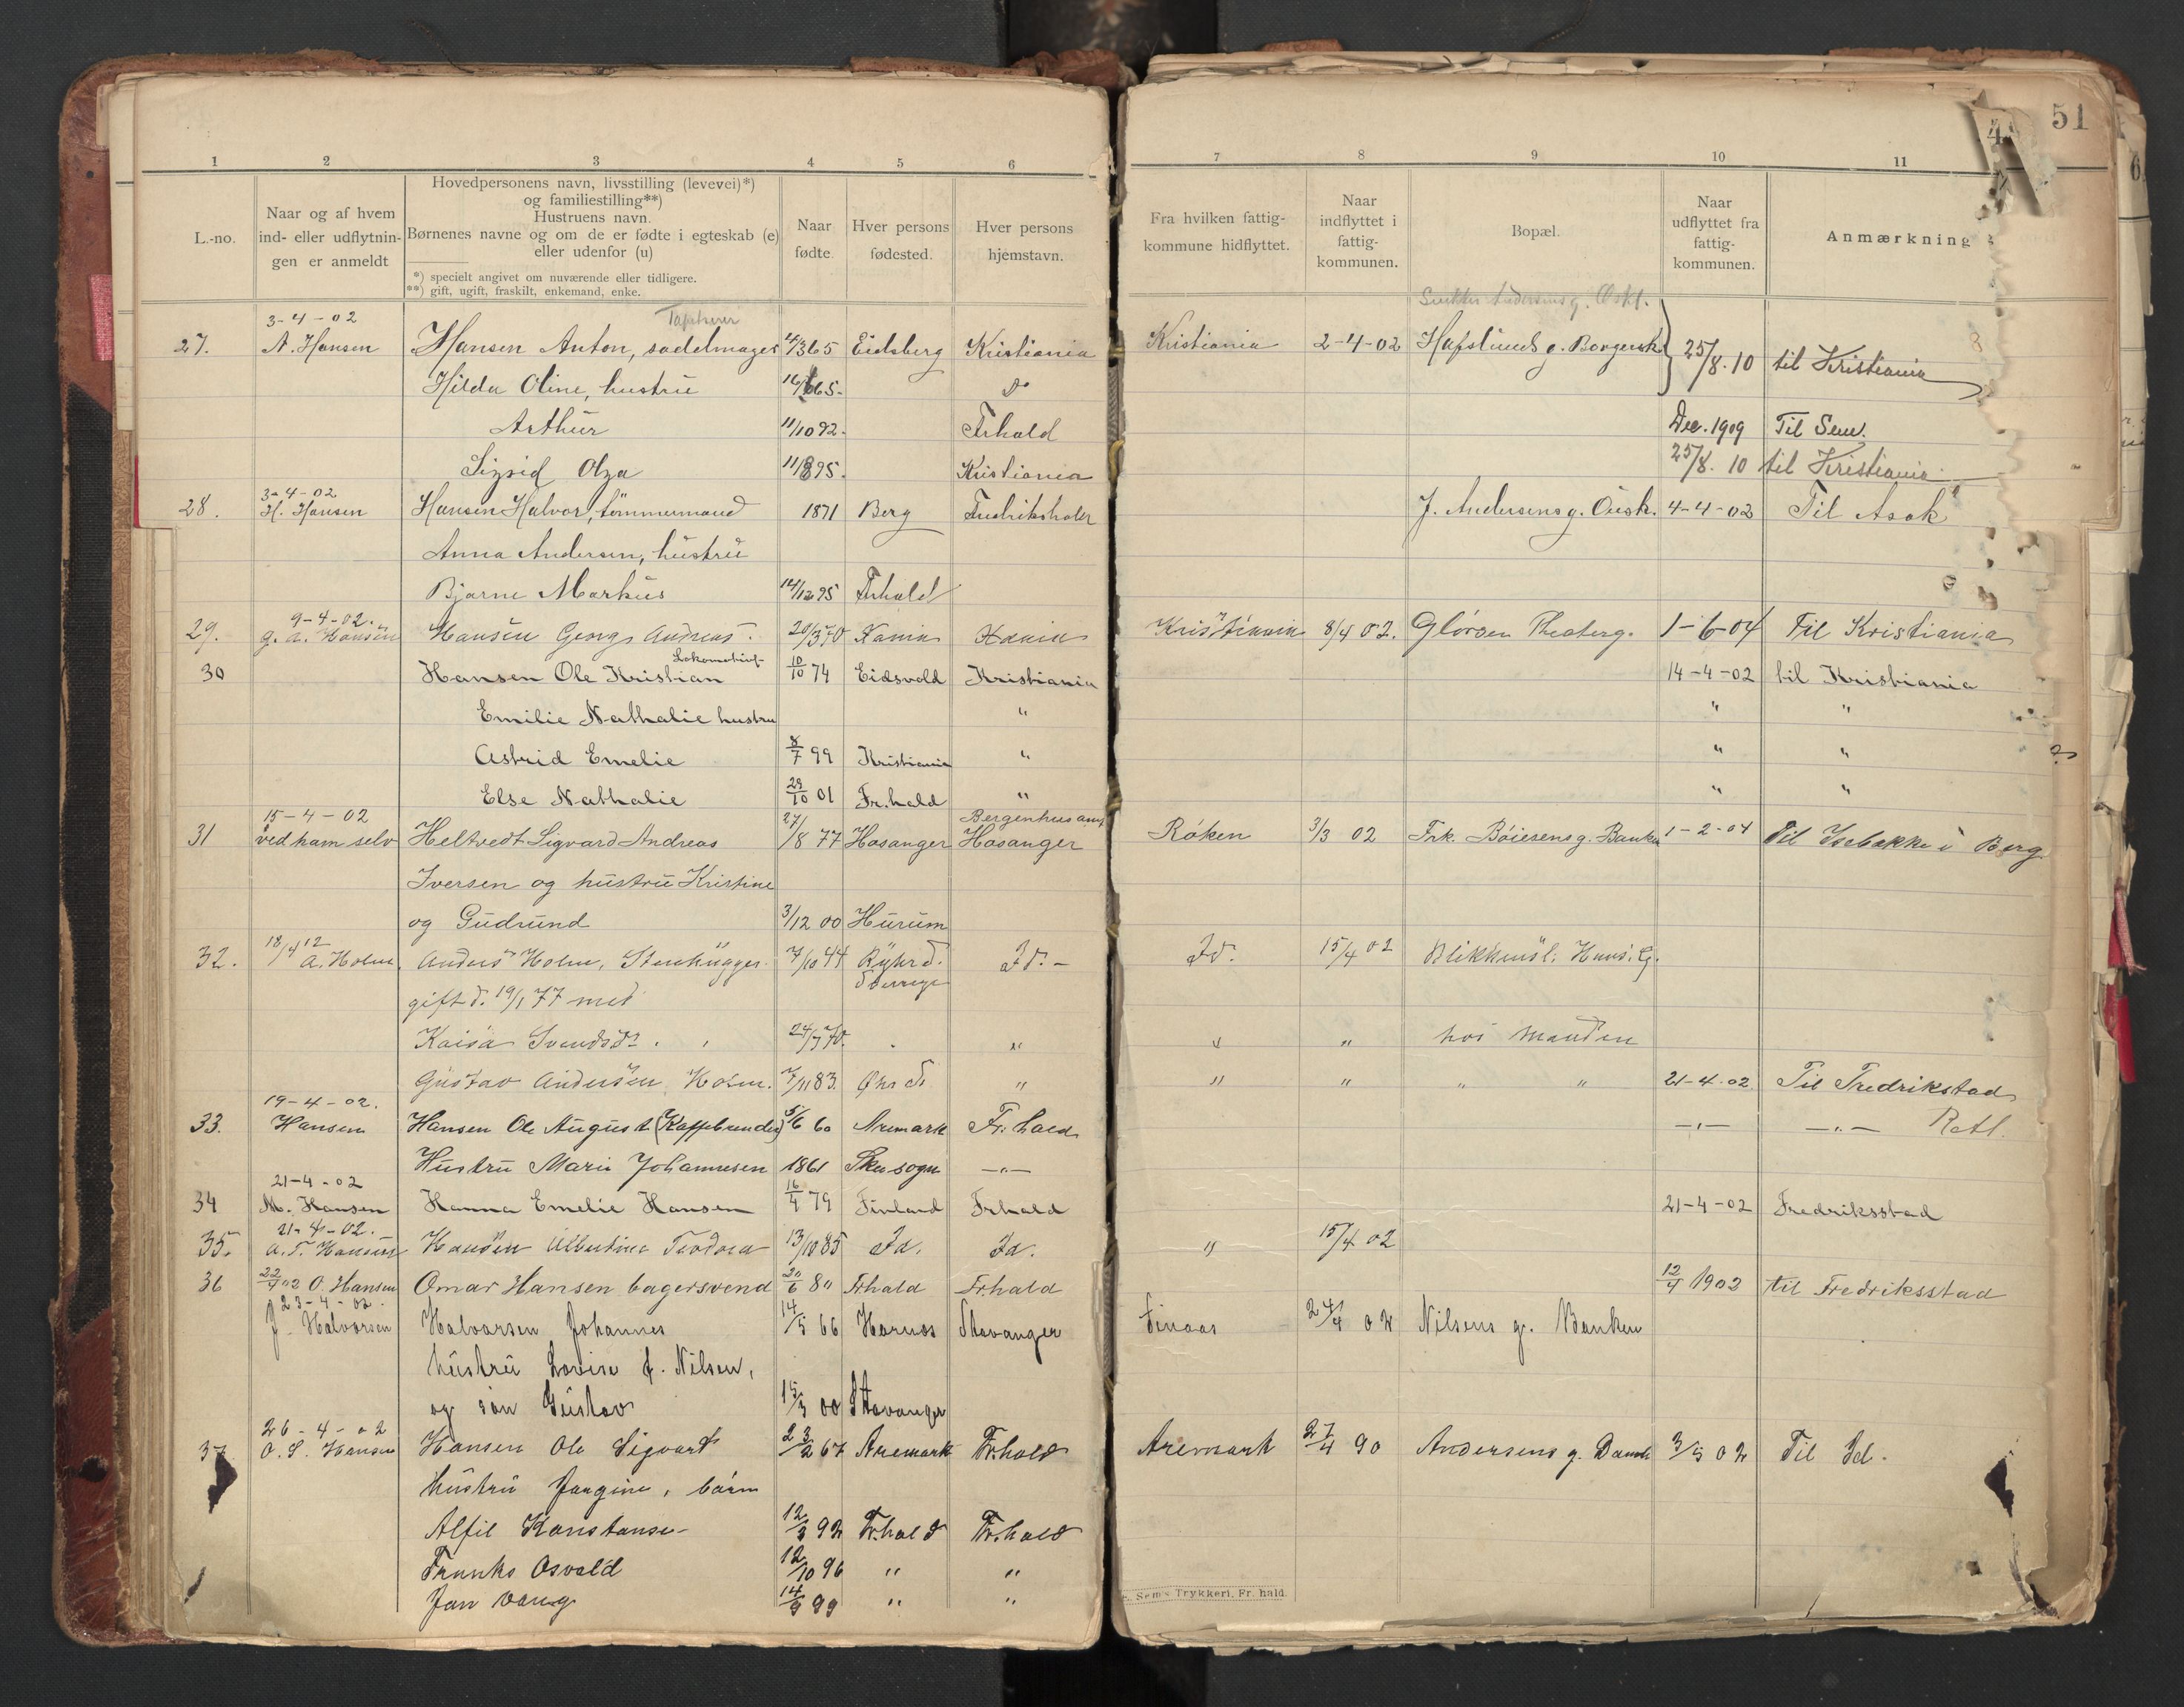 51
1 2 3 4 5 6 7 8 9 10 11
L.-no.
Naar og af hvem
ind- eller udflytnin-
gen er anmeldt
Hovedpersonens navn, livsstilling (levevei)*)
og familiestilling**)
Hustruens navn.
Børnenes navne og om de er fødte i egteskab (e)
eller udenfor (u)
*) specielt angivet om nuværende eller tidligere.
**) gift, ugift, fraskilt, enkemand, enke.
Naar
fødte.
Hver persons
fødested.
Hver persons
hjemstavn.
Fra hvilken fattig-
kommune hidflyttet.
Naar
indflyttet i
fattig-
kommunen.
Bopæl.
Naar
udflyttet fra
fattig-
kommunen.
Anmærkning
3-4-02
27. A. Hansen Hansen Anton, sadelmager Eidsberg Kristiania Kristiania 2-4-02 Hafslunds g. 25/8.10 til Kristiania
Hilda Oline, hustru Do
Arthur 11/10 92. Frhald Dec. 1909 Til Sem.
Sigrid Olga 11/8 95. Kristiania 25/8.10 til Kristiania
3-4-02
28. H. Hansen Hansen Halvor, tømmermand 1871 Berg Fredrikshald J. Andersens g. 4-4-02 Til Asak
Anna Andersen, hustru
Bjarne Markus 14/12 95 Frhald
9-4-02.
29. G. A. Hansen Hansen Georg Andreas. 20/3 70 Kristiania 8/4 02. 1-6-04 Til Kristiania
Lokomotivf-
30 Hansen Ole Kristian 10/10 74 Eidsvold Kristiania 14-4-02 til Kristiania
Emilie Nathalie hustru " " "
Astrid Emelie 8/7 99 Kristiania " " "
Else Nathalie 29/10 01 Fr.hald " " "
15-4-02 Bergenhus amt
31 ved ham selv Heltvedt Sigvard Andreas 27/8 77 Hosanger Hosanger Røken 3/3 02 Frk. Bøiesens g. Banken 1-2-04 Til Isebakke i Berg
Iversen og hustru Kristine
og Gudrund 3/12 00 Hurum
32. A. Holm. Anders Holm, Stenhugger 7/10 44 Id. Id. 15/4 02
Sverige
gift d. 19/1 77 med
Kaisa " " " hos Manden
Gustav Andersen Holm. 7/11 83. " " " " " 21-4-02 Til Fredrikstad
19-4-02.
33. Hansen Hansen Ole August (Kaffebrænder) 5/6 60 Aremark Fr.hald —„— —„—
Hustru Marie Johannesen 1861 —„—
21-4-02
34 M. Hansen Hanna Emelie Hansen 16/4 79 Finland Frhald 21-4-02 Fredriksstad
21-4-02.
35. A. T. Hansen Hansen Albertine Teodora 13/10 85 Id. Id. " 15/4 02
36 22/4 02 O. Hansen Omar Hansen bagersvend Frhald Frhald 12/4 1902 til Fredriksstad
23-4-02.
J. Halvorsen Halvorsen Johannes 14/5 66 Stavanger 24/4 02 Nilsens g. Banken
hustru Lovise f. Nilsen,
og søn Gustav 00 Stavanger
26-4-02
37 O. S. Hansen Hansen Ole Sigvart 23/2 67 Aremark Fr.hald Aremark 27/4 90 Andersens g. 3/5 02 Til Id.
Hustru Jorgine, børn
Alfil Konstanse 12/3 92 Fr.hald Fr.hald
Franks Osvald 12/10 96 " "
Jan 14/9 99 " "
Sem's Trykkeri, Fr.hald.